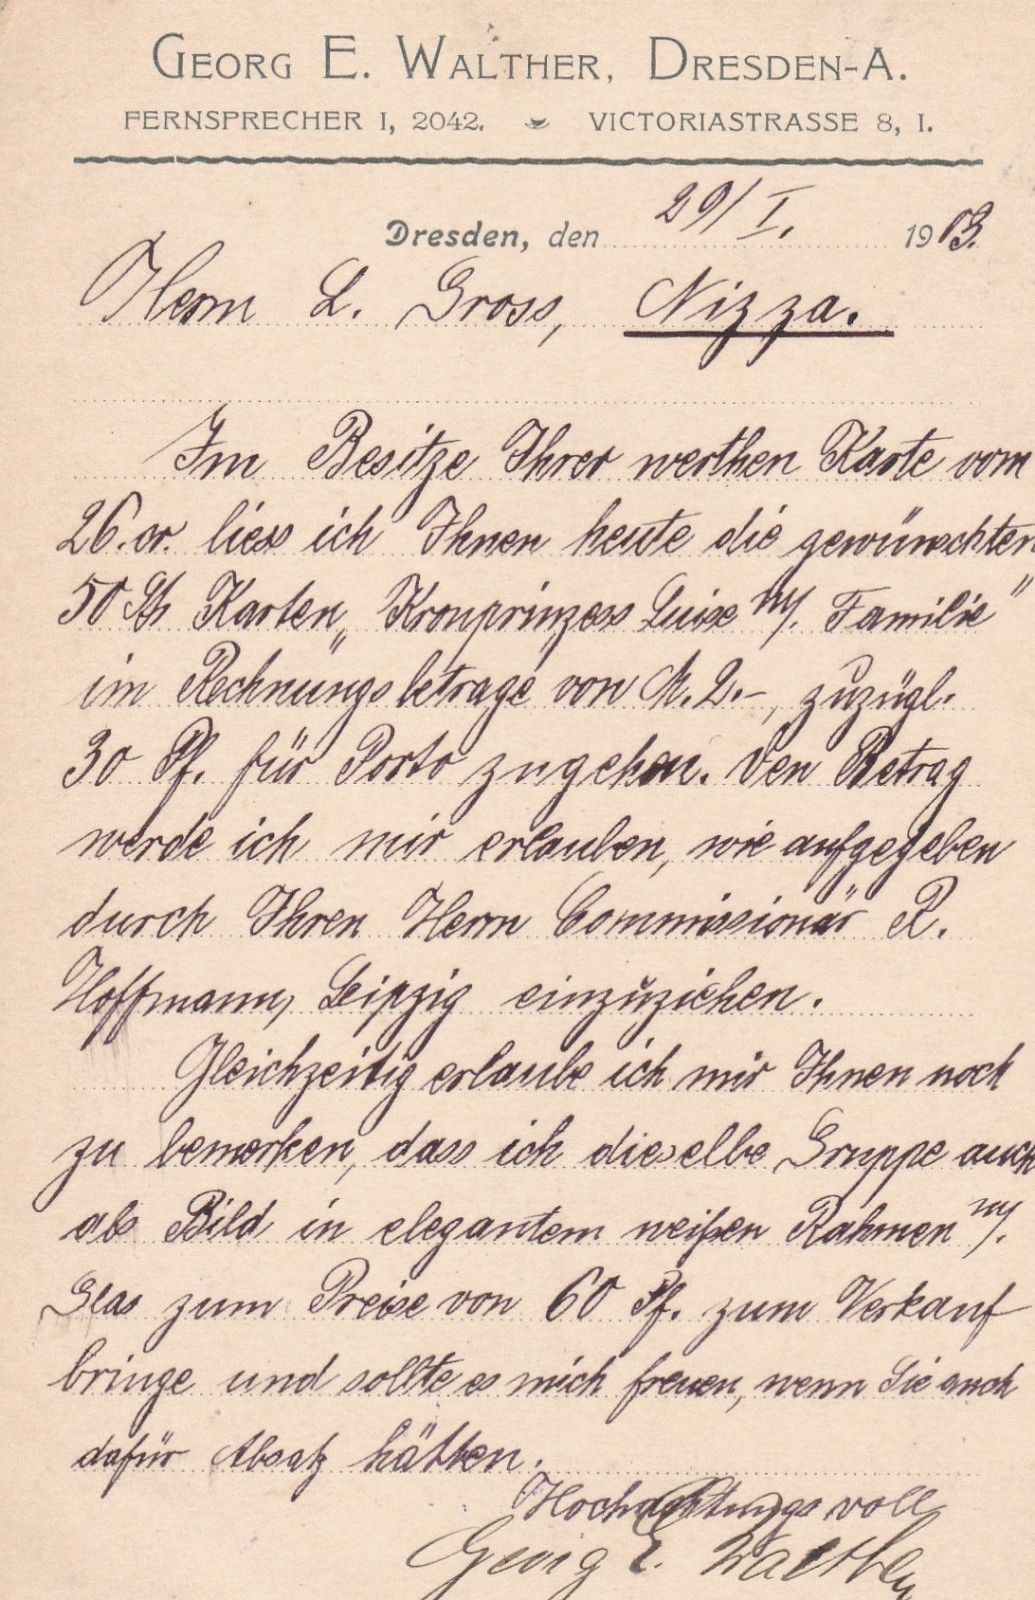 GEORG E. WALTHER, DRESDEN-A.
FERNSPRECHER I, 2042. VICTORIASTRASSE 8, I.
Dresden, den 29/I. 1903.
Herrn L. Gross, Nizza.
Im Besitze Ihrer werthen Karte vom
26. cr. liess ich Ihnen heute die gewünschten
50 St. Karten „Kronprinzess Luise m/. Familie"
im Rechnungsbetrage von M. 2.–, zuzügl.
30 Pf. für Porto zugehen. Den Betrag
werde ich mir erlauben, wie aufgegeben
durch Ihren Herrn Commissionär R.
Hoffmann, Leipzig einzuziehen.
Gleichzeitig erlaube ich mir Ihnen noch
zu bemerken, dass ich dieselbe Gruppe auch
als Bild in elegantem weißen Rahmen m/.
Glas zum Preise von 60 Pf. zum Verkauf
bringe und sollte es mich freuen, wenn Sie auch
dafür Absatz hätten.
Hochachtungsvoll
Georg E. Walther